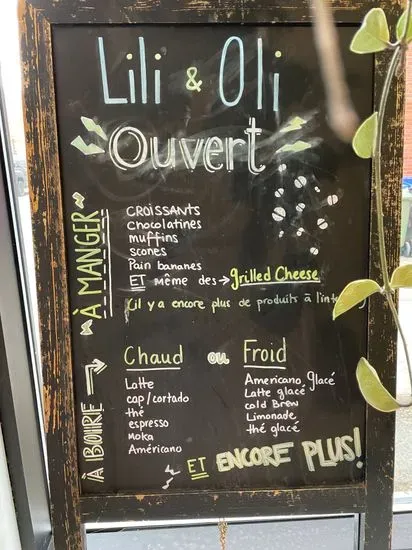 Lili & Oli
Ouvert
À MANGER
CROISSANTS
Chocolatines
muffins
scones
Pain bananes
ET même des → grilled Cheese
(il y a encore plus de produits à l'inte
À BOIRE
Chaud ou Froid
Latte
cap/cortado
thé
espresso
Moka
Américano
Americano glacé
Latte glacé
cold Brew
Limonade
thé glacé
ET ENCORE PLUS!